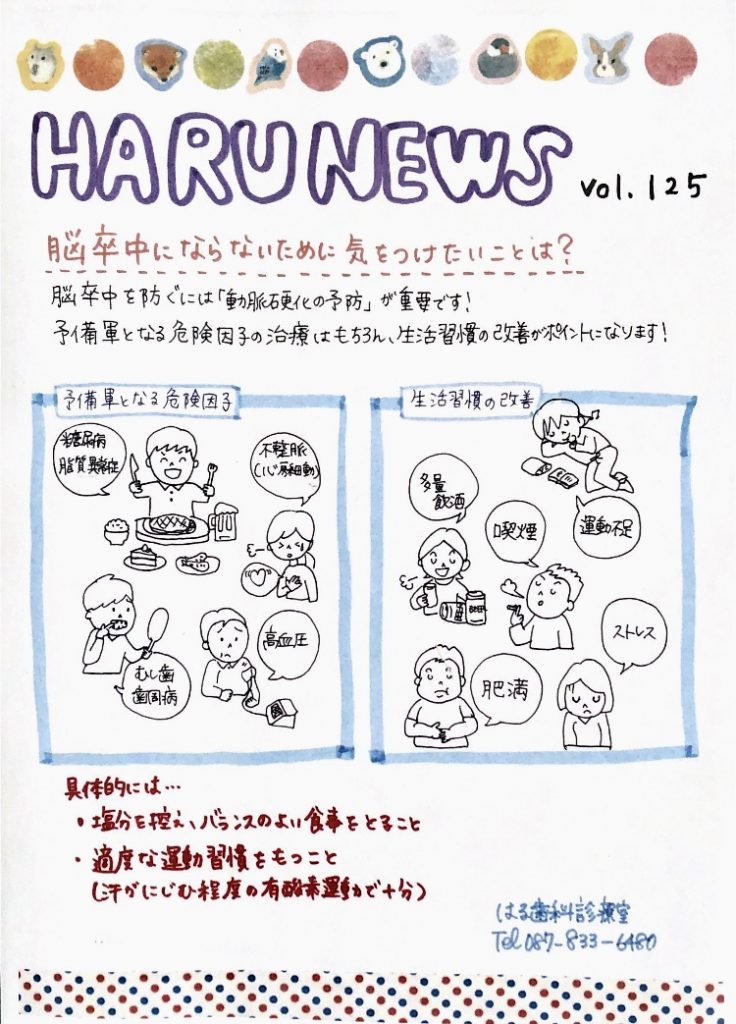 HARU NEWS vol.125
脳卒中にならないために気をつけたいことは?
脳卒中を防ぐには「動脈硬化の予防」が重要です!
予備軍となる危険因子の治療はもちろん、生活習慣の改善がポイントになります!
予備軍となる危険因子
糖尿病
脂質異常症
不整脈
(心房細動)
むし歯
歯周病
高血圧
生活習慣の改善
運動不足
多量
飲酒
喫煙
酒
BEER
ストレス
肥満
具体的には…
・塩分を控え、バランスのよい食事をとること
・適度な運動習慣をもつこと
(汗がにじむ程度の有酸素運動で十分)
はる歯科診療室
Tel 087-833-6480